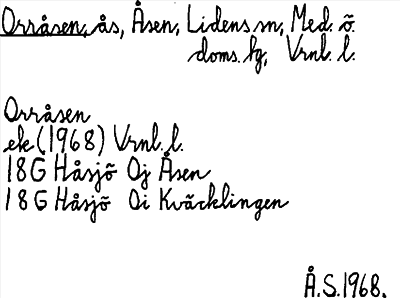 Orråsen, ås, Åsen, Lidens sn, Med. ö.
doms. hg, Vrnl. l.
Orråsen
ek (1968) Vrnl. l.
18G Håsjö Oj Åsen
18G Håsjö Oi Kväcklingen
Å.S. 1968.